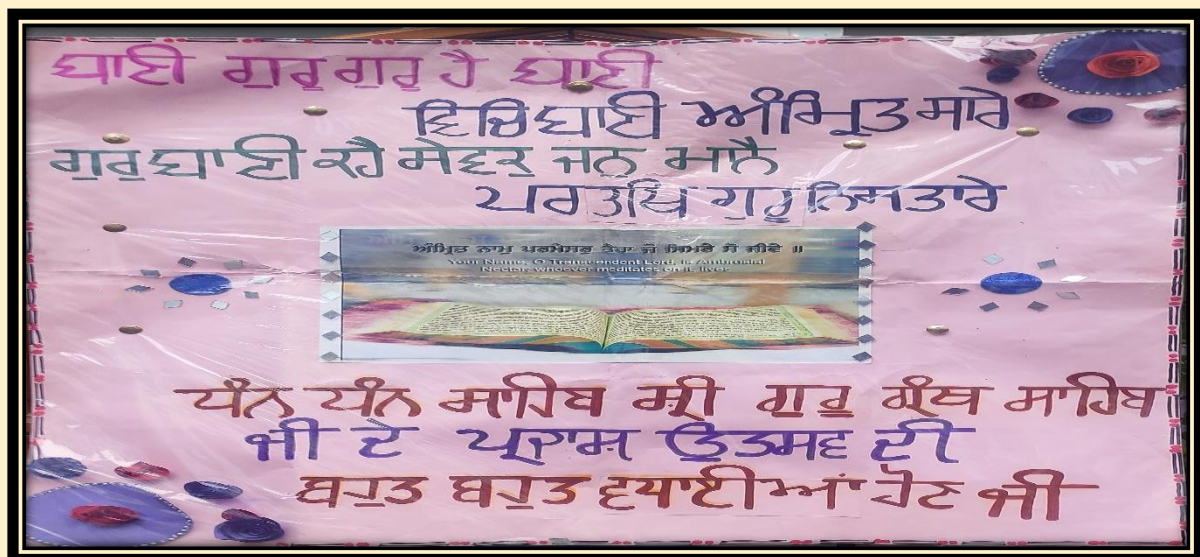 ਬਾਣੀ ਗੁਰੂ ਗੁਰੂ ਹੈ ਬਾਣੀ
ਵਿਚਿ ਬਾਣੀ ਅੰਮ੍ਰਿਤ ਸਾਰੇ
ਗੁਰੁ ਬਾਣੀ ਕਹੈ ਸੇਵਕੁ ਜਨੁ ਮਾਨੈ
ਪਰਤਖਿ ਗੁਰੂ ਨਿਸਤਾਰੇ
ਅੰਮ੍ਰਿਤ ਨਾਮੁ ਪਰਮੇਸਰੁ ਤੇਰਾ ਜੋ ਸਿਮਰੈ ਸੋ ਜੀਵੈ ॥
Your Name, O Transcendent Lord, is Ambrosial
Nectar; whoever meditates on it, lives.
ਧੰਨ ਧੰਨ ਸਾਹਿਬ ਸ੍ਰੀ ਗੁਰੂ ਗ੍ਰੰਥ ਸਾਹਿਬ
ਜੀ ਦੇ ਪ੍ਰਕਾਸ਼ ਉਤਸਵ ਦੀ
ਬਹੁਤ ਬਹੁਤ ਵਧਾਈਆਂ ਹੋਣ ਜੀ